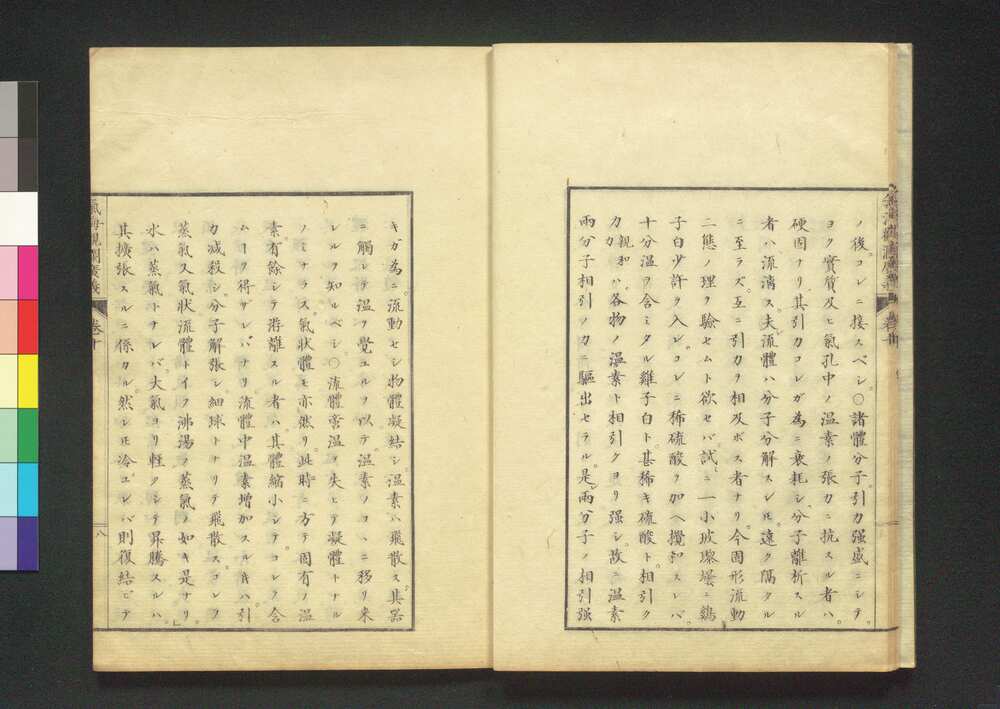 ノ後コレニ接スベシ。〇諸體分子引力强盛ニシテ。
ヨク實質及ヒ氣孔中ノ温素ノ張力ニ抗スル者ハ。
硬固ナリ其引力コレガ為ニ衰耗シ分子離析スル
者ハ流漓ス。夫流體ハ分子分解スレ𪜈。遠ク隔タル
ニ至ラズ。互ニ引力ヲ相及ボス者ナリ。今固形流動
二態ノ理ヲ驗セムト欲セバ。試ニ一小玻瓈壜ニ鷄
子白少許ヲ入レ。コレニ稀硫酸ヲ加ヘ攪和スレバ。
十分温ヲ含ミタル雞子白ト甚稀キ硫酸ト。相引ク
力親和力ハ。各物ノ温素ト相引クヨリ强シ。故ニ温素
兩分子相引ノ力ニ驅出セラル。是兩分子ノ相引强
キガ為ニ。流動セシ物體凝結シ。温素ハ飛散ス。其器
ニ觸レテ温ヲ覺ユルヲ以テ。温素ノコヽニ移リ来
レルヲ知ルベシ〇流體常温ヲ失ヒテ凝體トナル
ノミナラス。氣狀體モ亦然リ。此時ニ方テ固有ノ温
素有餘シテ游離スル者ハ其體縮小シテコレヲ含
ムヿヲ得ザレバナリ流體中温素増加スル𪜈ハ引
力減殺シ。分子解張シ。細球トナリテ飛散ス。コレヲ
蒸氣ス氣狀流體トイフ沸湯ノ蒸氣ノ如キ是ナリ。
水ハ蒸氣トナレバ。大氣ヨリ輕クシテ昇騰スルハ。
其擴張スルニ係カル然レ𪜈冷ユレバ則復結シテ
氣海觀瀾廣義
卷十
八